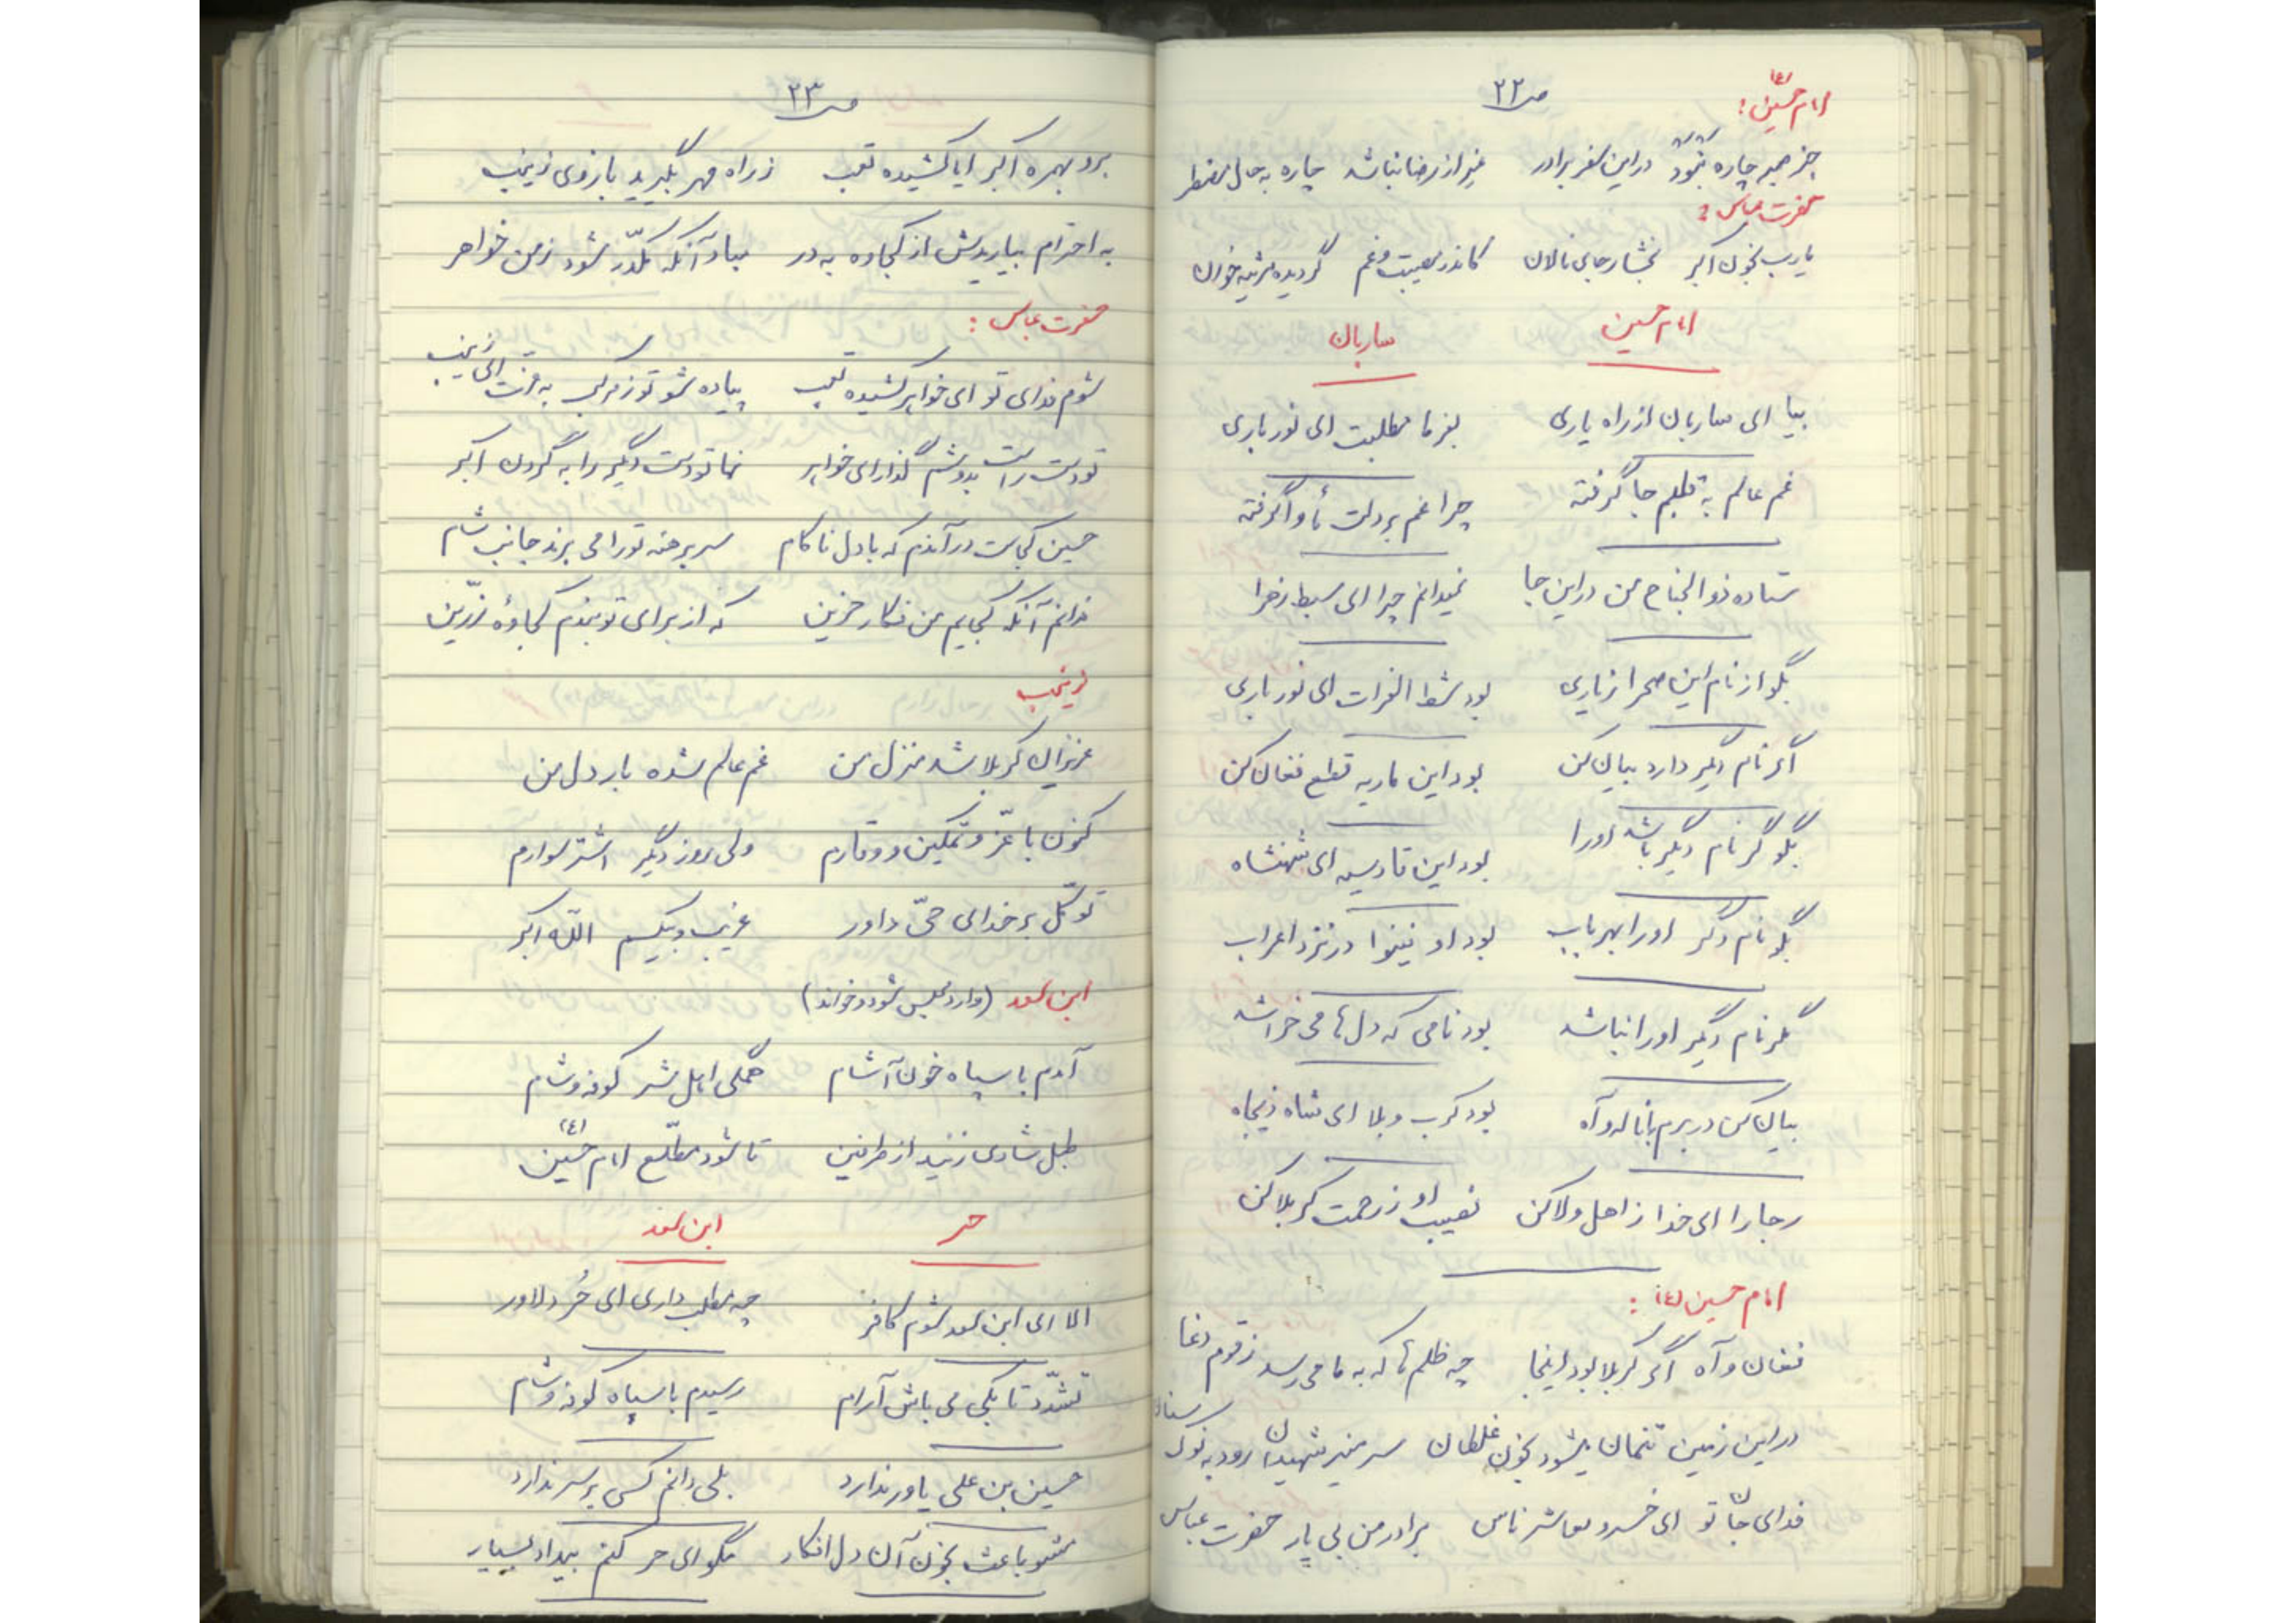 ص ۲۲
امام حسین (ع):
جز صبر چاره نبود در این سفر برادر غیر از رضا نباشد چاره به حال مضطر
حضرت عباس:
یارب بخون اکبر بخشا رجای نالان کاندر مصیبت و غم گردیده مرثیه خوان
امام حسین ساربان
بیا ای ساربان از راه یاری بفرما مطلبت ای نور باری
غم عالم به قلبم جا گرفته چرا غم بر دلت مأوا گرفته
ستاده ذوالجناح من در این جا نمیدانم چرا ای سبط زهرا
بگو از نام این صحرا ز یاری بود شط الفرات ای نور باری
اگر نام دیگر دارد بیان کن بود این ماریه قطع فغان کن
بگو گر نام دیگر باشد او را بود این قادسیه ای شهنشاه
بگو نام دگر او را بهر باب بود او نینوا در نزد اعراب
مگر نام دیگر او را نباشد بود نامی که دل ها می خراشد
بیان کن در برم با ناله و آه بود کرب و بلا ای شاه ذیجاه
رجا را ای خدا ز اهل ولا کن نصیب او ز رحمت کربلا کن
امام حسین (ع):
فغان و آه اگر کربلا بود اینجا چه ظلم ها که به ما می رسد ز قوم دغا
در این زمین تنمان میشود بخون غلطان سر منیر شهیدان رود به نوک سنان
فدای جان تو ای خسرو معاشر ناس برادر من بی یار حضرت عباس
ص ۲۳
برو بهمره اکبر ایا کشیده تعب ز راه مهر بگیرید بازوی زینب
به احترام بیاریدش از کجاوه به در مباد آنکه مکدّر شود ز من خواهر
حضرت عباس:
شوم فدای تو ای خواهر کشیده تعب پیاده شو تو ز مرکب به عزت ای زینب
تو دست راست بدوشم گذار ای خواهر نما تو دست دیگر را به گردن اکبر
حسین کجاست در آندم که با دل ناکام سر برهنه تو را می برند جانب شام
ندانم آنکه کجایم من فکار حزین که از برای تو بندم کجاوهٔ زرّین
زینب
عزیزان کربلا شد منزل من غم عالم شده بار دل من
کنون با عزّ و تمکین و وقارم ولی روز دیگر اشتر سوارم
توکّل بر خدای حیّ داور غریب و بیکسم اللّه اکبر
ابن سعد (وارد مجلس شود و خواند)
آمدم با سپاه خون آشام همگی اهل شر کوفه و شام
طبل شادی زنید از طرفین تا شود مطّلع امام حسین (ع)
حر ابن سعد
الا ای ابن سعد شوم کافر چه مطلب داری ای حُر دلاور
تشدّد تا بکی می باش آرام رسیدم با سپاه کوفه و شام
حسین بن علی یاور ندارد بلی دانم کسی بر سر ندارد
مشو باعث بخون آن دل افکار مگو ای حر کنم بیداد بسیار